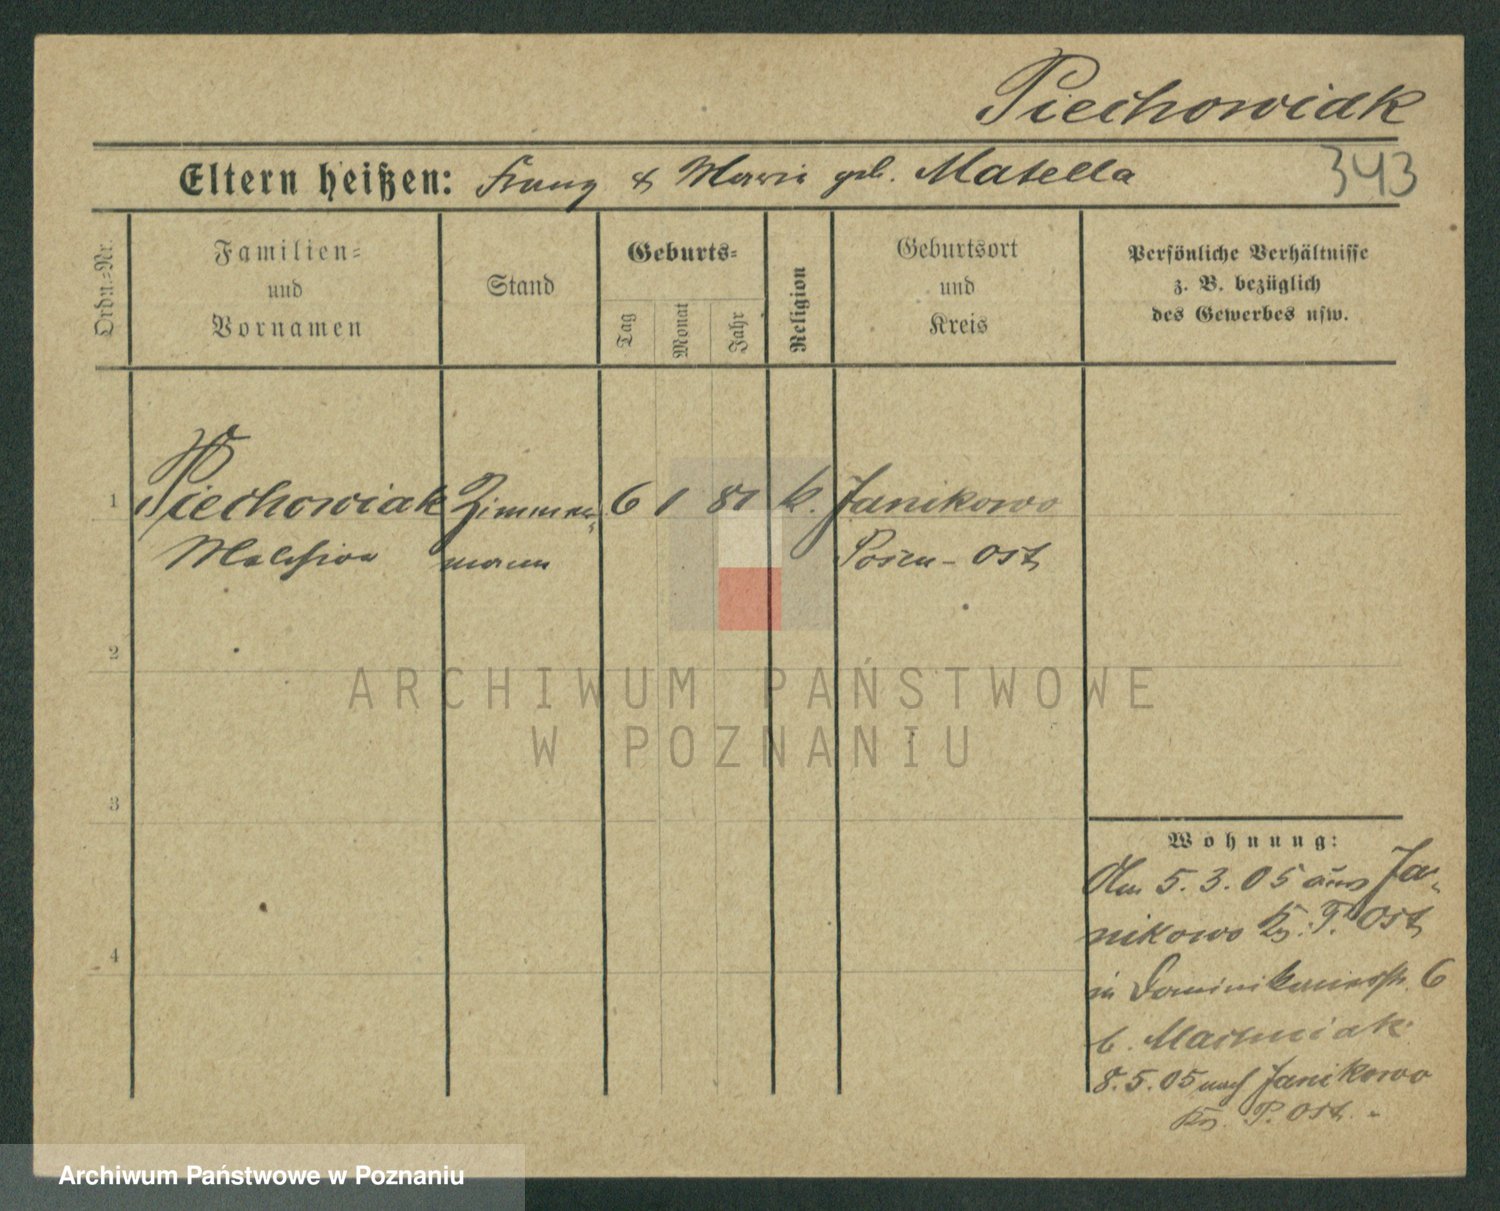 Piechowiak
Eltern heißen: Franz & Maria geb. Matella
343
Ordn.=Nr.
Familien=
und
Vornamen
Stand
Geburts=
Tag
Monat
Jahr
Religion
Geburtsort
und
Kreis
Persönliche Verhältnisse
z. B. bezüglich
des Gewerbes usw.
1 Piechowiak Zimmer- 6 1 81 k. Janikowo
Melchior mann Posen-Ost
2
3
4
Wohnung:
Am 5.3.05 aus Ja-
nikowo Kr. P. Ost
in Dominikanerstr. 6
b.
8.5.05 nach Janikowo
Kr. P. Ost.
ARCHIWUM PAŃSTWOWE
W POZNANIU
Archiwum Państwowe w Poznaniu